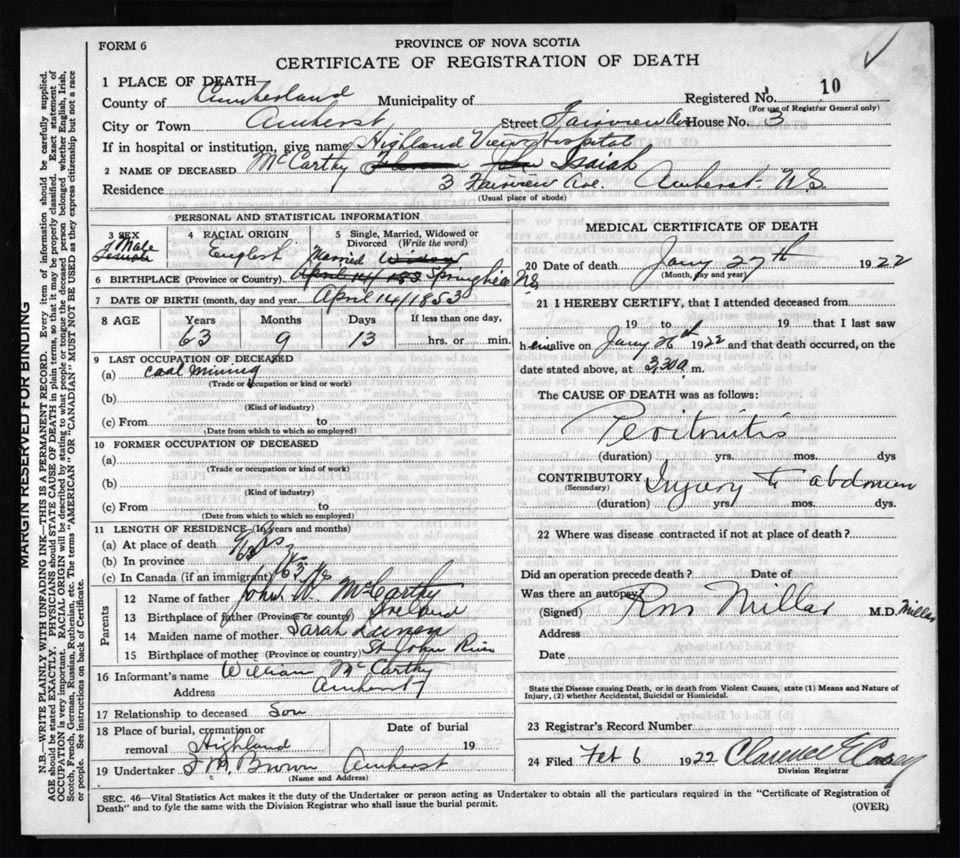 FORM 6
PROVINCE OF NOVA SCOTIA
CERTIFICATE OF REGISTRATION OF DEATH
1 PLACE OF DEATH
County of Cumberland Municipality of Registered No. 10
(For use of Registrar General only)
City or Town Amherst Street Fairview Ave House No. 3
If in hospital or institution, give name Highland View Hospital
2 NAME OF DECEASED McCarthy Isaiah
Residence 3 Fairview Ave. Amherst N.S.
(Usual place of abode)
PERSONAL AND STATISTICAL INFORMATION
3 SEX Male Female
4 RACIAL ORIGIN English
5 Single, Married, Widowed or Divorced (Write the word) Married Widow
6 BIRTHPLACE (Province or Country) Springhill NS
7 DATE OF BIRTH (month, day and year) April 14/1853
8 AGE Years Months Days If less than one day,
63 9 13 hrs. or min.
9 LAST OCCUPATION OF DECEASED
(a) Coal Mining
(Trade or occupation or kind or work)
(b)
(Kind of industry)
(c) From to
(Date from which to which so employed)
10 FORMER OCCUPATION OF DECEASED
(a)
(Trade or occupation or kind of work)
(b)
(Kind of industry)
(c) From to
(Date from which to which so employed)
11 LENGTH OF RESIDENCE (In years and months)
(a) At place of death
(b) In province 63
(c) In Canada (if an immigrant) 63
Parents
12 Name of father John McCarthy
13 Birthplace of father (Province or country) Ireland
14 Maiden name of mother Sarah
15 Birthplace of mother (Province or country) St John River
16 Informant's name William McCarthy
Address Amherst
17 Relationship to deceased Son
18 Place of burial, cremation or removal Highland Date of burial 19
19 Undertaker Brown Amherst
(Name and Address)
MEDICAL CERTIFICATE OF DEATH
20 Date of death Jany 27th 1922
(Month, day and year)
21 I HEREBY CERTIFY, that I attended deceased from
19 to 19 that I last saw
h alive on Jany 26 1922 and that death occurred, on the
date stated above, at 2,30 a m.
The CAUSE OF DEATH was as follows:
Peritonitis
(duration) yrs. mos. dys
CONTRIBUTORY Injury to abdomen
(Secondary)
(duration) yrs. mos. dys.
22 Where was disease contracted if not at place of death?
Did an operation precede death? Date of
Was there an autopsy?
(Signed) Ross Millar M.D. Millar
Address
Date
State the Disease causing Death, or in death from Violent Causes, state (1) Means and Nature of
Injury, (2) whether Accidental, Suicidal or Homicidal.
23 Registrar's Record Number
24 Filed Feb 6 1922 Clarence E Casey
Division Registrar
SEC. 46—Vital Statistics Act makes it the duty of the Undertaker or person acting as Undertaker to obtain all the particulars required in the "Certificate of Registration of
Death" and to fyle the same with the Division Registrar who shall issue the burial permit.
(OVER)
MARGIN RESERVED FOR BINDING
N.B.—WRITE PLAINLY WITH UNFADING INK—THIS IS A PERMANENT RECORD. Every item of information should be carefully supplied.
AGE should be stated EXACTLY. PHYSICIANS should STATE CAUSE OF DEATH in plain terms, so that it may be properly classified. Exact statement of
OCCUPATION is very important. RACIAL ORIGIN will be described by stating to what people or tongue the deceased person belonged whether English, Irish,
Scotch, French, German, Russian, Ruthenian, etc. The terms "AMERICAN" OR "CANADIAN" MUST NOT BE USED as they express citizenship but not a race
or people. See instructions on back of Certificate.